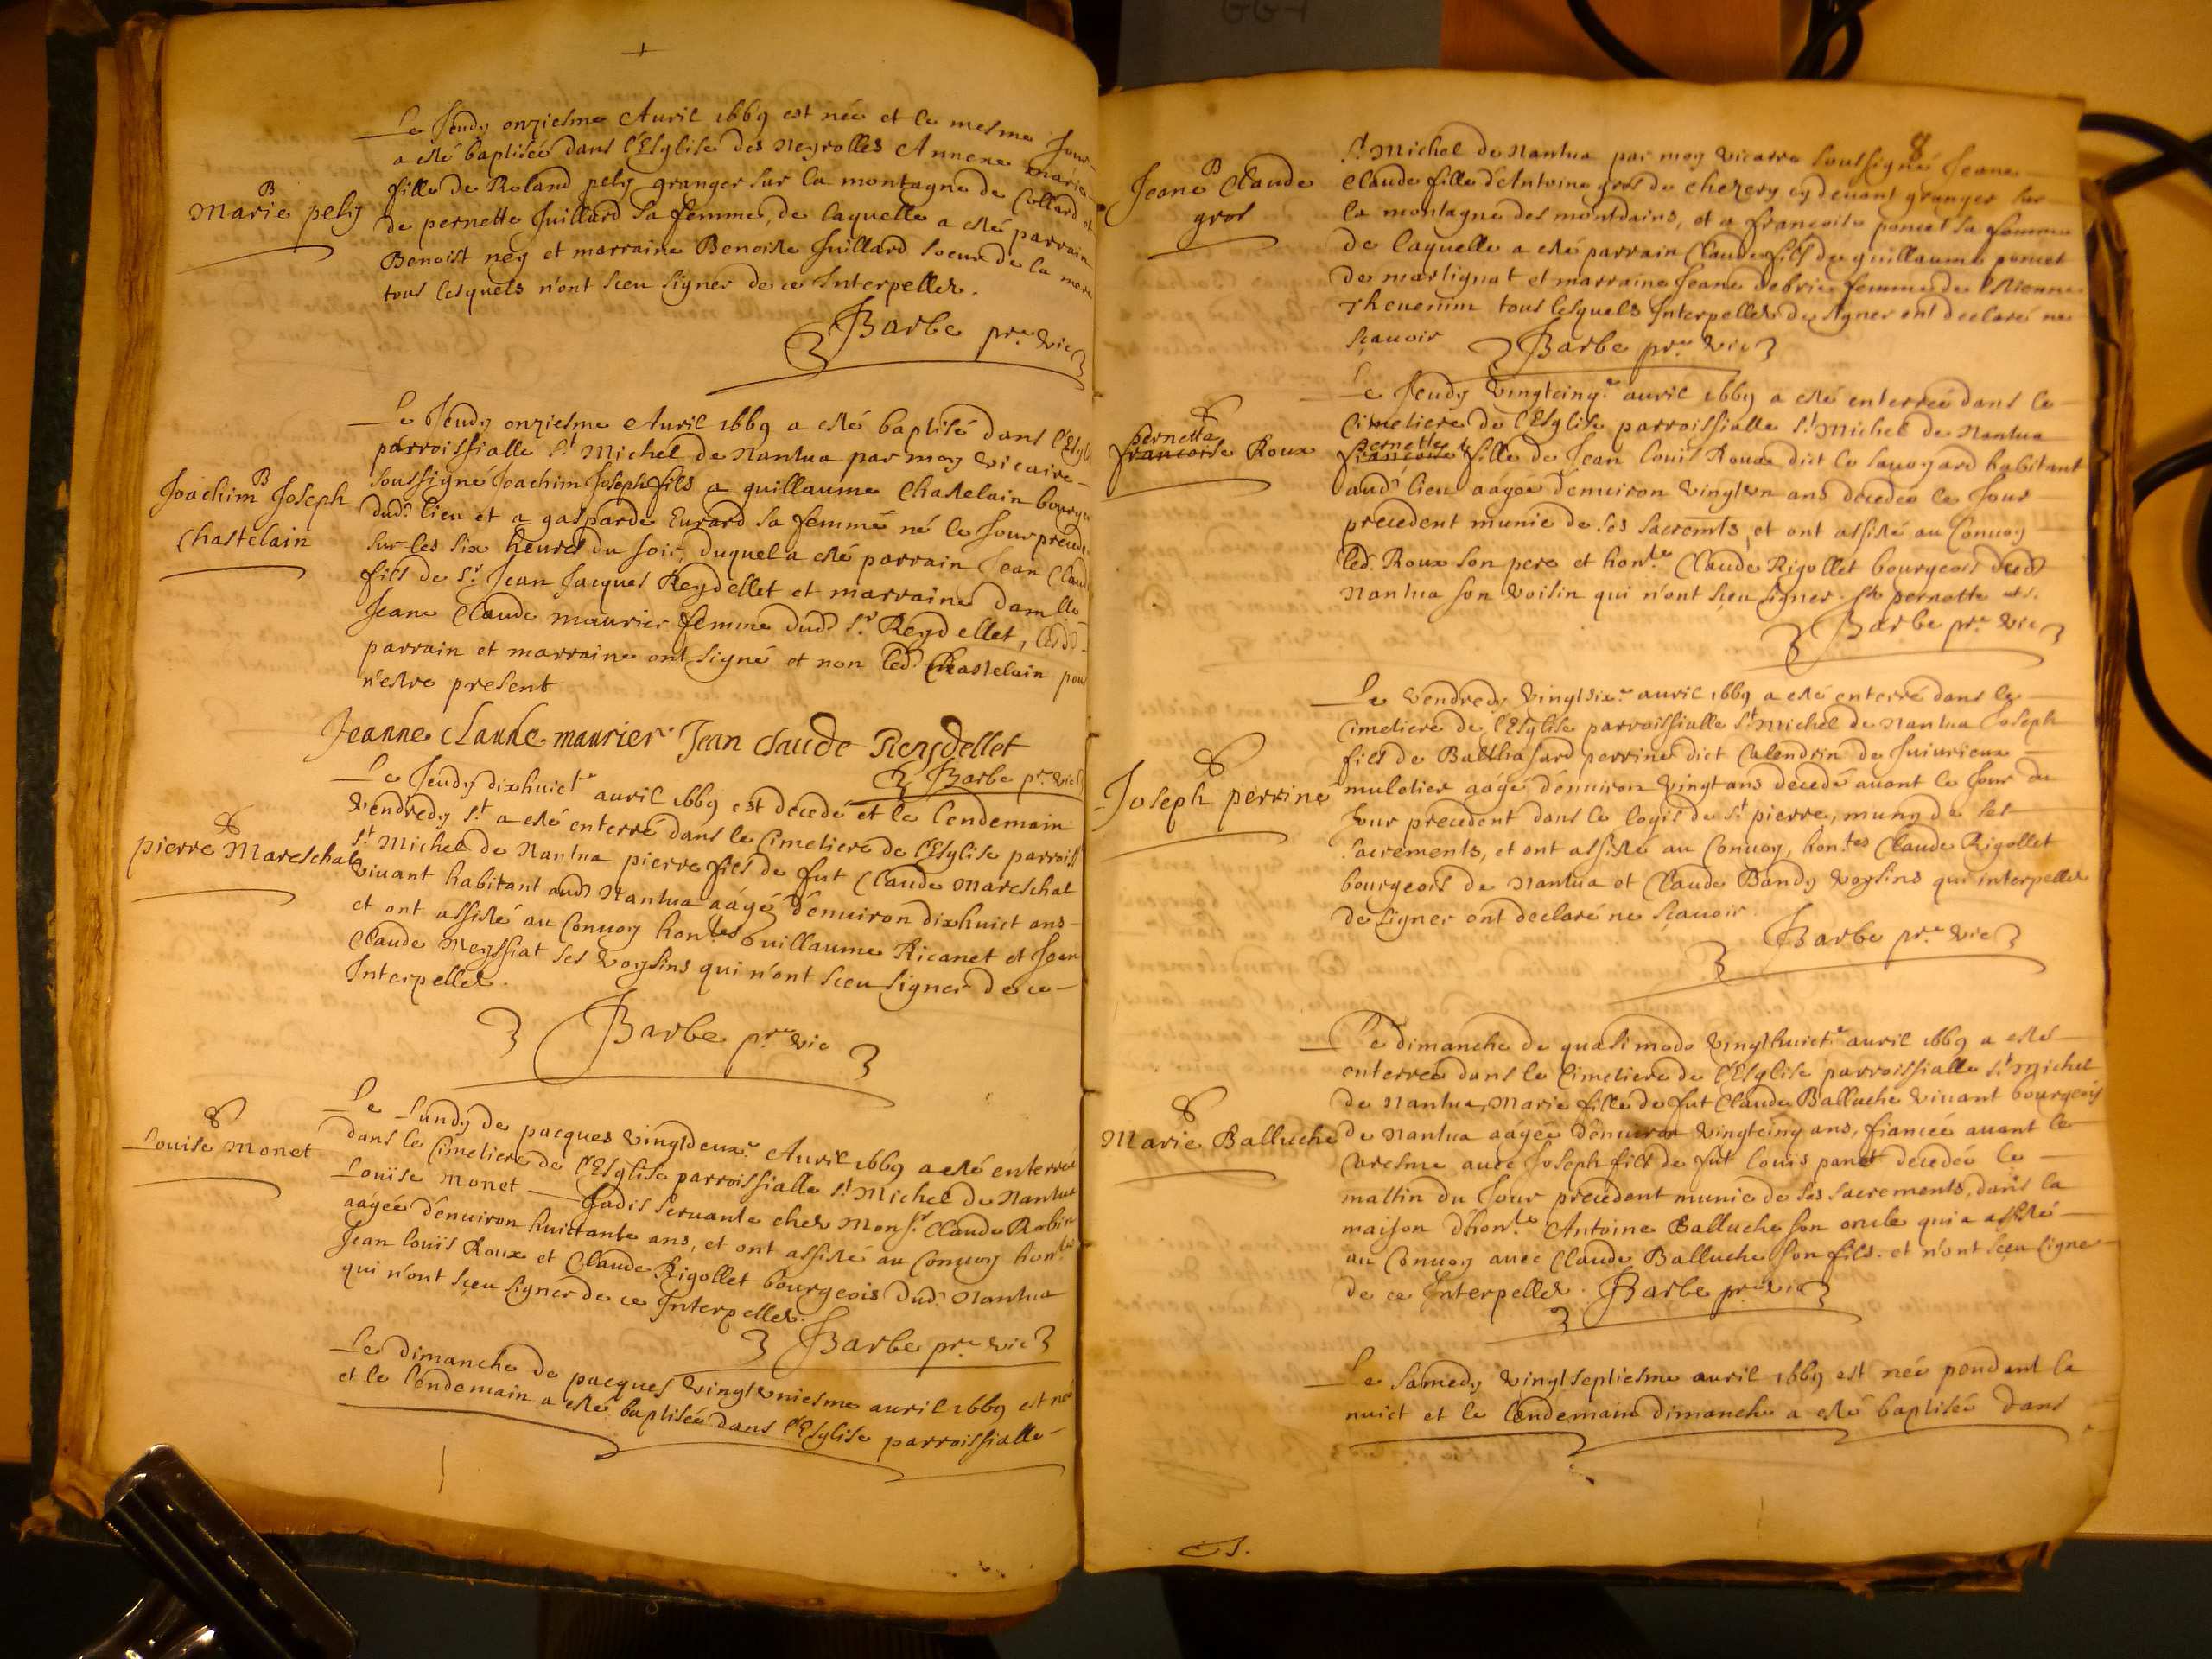 Le Jeudy onziesme Auril 1669 est née et le mesme Jour
a esté baptisée dans l'Esglise des Neyrolles Annexe Marie
B
Marie pely
fille de Roland pely granger sur la montagne de Collard et
de pernette Juillard sa femme, de laquelle a esté parrain
Benoist ney et marraine Benoiste Juillard soeur de la mere
tous lesquels n'ont sceu signer de ce Interpellez.
Barbe pre. vic
Le Jeudy onziesme Auril 1669 a esté baptisé dans l'Esgl.
parroissialle St Michel de Nantua par moy vicaire
B
Joachim Joseph
Chastelain
soussigné Joachim Joseph fils a guillaume Chastelain bourge
dud. lieu et a gasparde Eurard sa femme né le Jour preced.
sur les six heures du soir, duquel a esté parrain Jean Claud
fils de Sr. Jean Jacques Reydellet et marraine damlle
Jeane Claude maurier femme dud. Sr. Reydellet, lesd.
parrain et marraine ont signé et non led. Chastelain pour
n'estre present
Jeanne claude maurier Jean claude Reydellet
Barbe pre. vic
Le Jeudy dixhuicte auril 1669 est decedé et le lendemain
vendredy St a esté enterré dans le Cimetiere de l'Esglise parroiss
pierre Mareschal
St Michel de Nantua pierre fils de fut Claude Mareschal
viuant habitant aud. Nantua aàgé d'enuiron dixhuict ans
et ont assisté au Conuoy hon.tes Guillaume Ricanet et Jean
Claude Meyssiat ses voysins qui n'ont sceu signer de ce
Interpellez.
Barbe pre. vic
Le Lundy de pacques vingtdeuxe. Auril 1669 a esté enterrée
dans le Cimetiere de l'Esglise parroissialle St Michel de Nantua
Louise Monet
Louïse Monet Jadis seruante chez Monsr. Claude Robin
aàgée d'enuiron huictante ans, et ont assisté au Conuoy hon.tes
Jean louïs Roux et Claude Rigollet bourgeois dud. Nantua
qui n'ont sceu signer de ce Interpellez.
Barbe pre. vic
Le dimanche de pacques vingtvniesme auril 1669 est née
et le lendemain a esté baptisée dans l'Esglise parroissialle
8
St Michel de Nantua par moy vicaire soussigné Jeane
B
Jeane Claude
gros
Claude fille d'Antoine gros de chezery cy deuant granger sur
la montagne des montdains, et a francoise poncet sa femme
de laquelle a esté parrain Claude fils de guillaume poncet
de martignat et marraine Jeane debrie femme de Estienne
Theuenin tous lesquels Interpellez de signer ont declaré ne
sçauoir
Barbe pre. vic
Le Jeudy vingtcinq.e auril 1669 a esté enterrée dans le
Cimetiere de l'Esglise parroissialle St Michel de Nantua
pernette
francoise Roux
pernette
francoise fille de Jean louïs Roux dict le sauoyard habitant
aud. lieu aàgée d'enuiron vingtvn ans decedée le Jour
precedent munie de ses sacremts, et ont assisté au Conuoy
led. Roux son pere et hon.te Claude Rigollet bourgeois dud.
Nantua son voisin qui n'ont sceu signer. pernette
Barbe pre. vic
Le vendredy vingtsixe auril 1669 a esté enterré dans le
Cimetiere de l'Esglise parroissialle St Michel de Nantua Joseph
Joseph perrine
fils de Balthasard perrine dict Calendrin de Juiurieux
muletier aàgé d'enuiron vingt ans decedé auant le Jour du
Jour precedent dans le logis de St pierre, muny de ses
sacrements, et ont assisté au Conuoy, hon.tes Claude Rigollet
bourgeois de Nantua et Claude Bandy voysins qui interpellez
de signer ont declaré ne sçauoir
Barbe pre. vic
Le dimanche de quasimodo vingthuict.e auril 1669 a esté
enterrée dans le Cimetiere de l'Esglise parroissialle St Michel
Marie Balluche
de Nantua, Marie fille de fut Claude Balluche viuant bourgeois
de Nantua aàgée d'enuiron vingtcinq ans, fiancée auant le
Caresme auec Joseph fils de fut louis panet decedée le
mattin du Jour precedent munie de ses sacrements, dans la
maison d'hon.te Antoine Balluche son oncle qui a assisté
au Conuoy auec Claude Balluche son fils. et n'ont sceu signer
de ce Interpellez. Barbe pre vic
Le samedy vingtseptiesme auril 1669 est née pendant la
nuict et le lendemain dimanche a esté baptisée dans